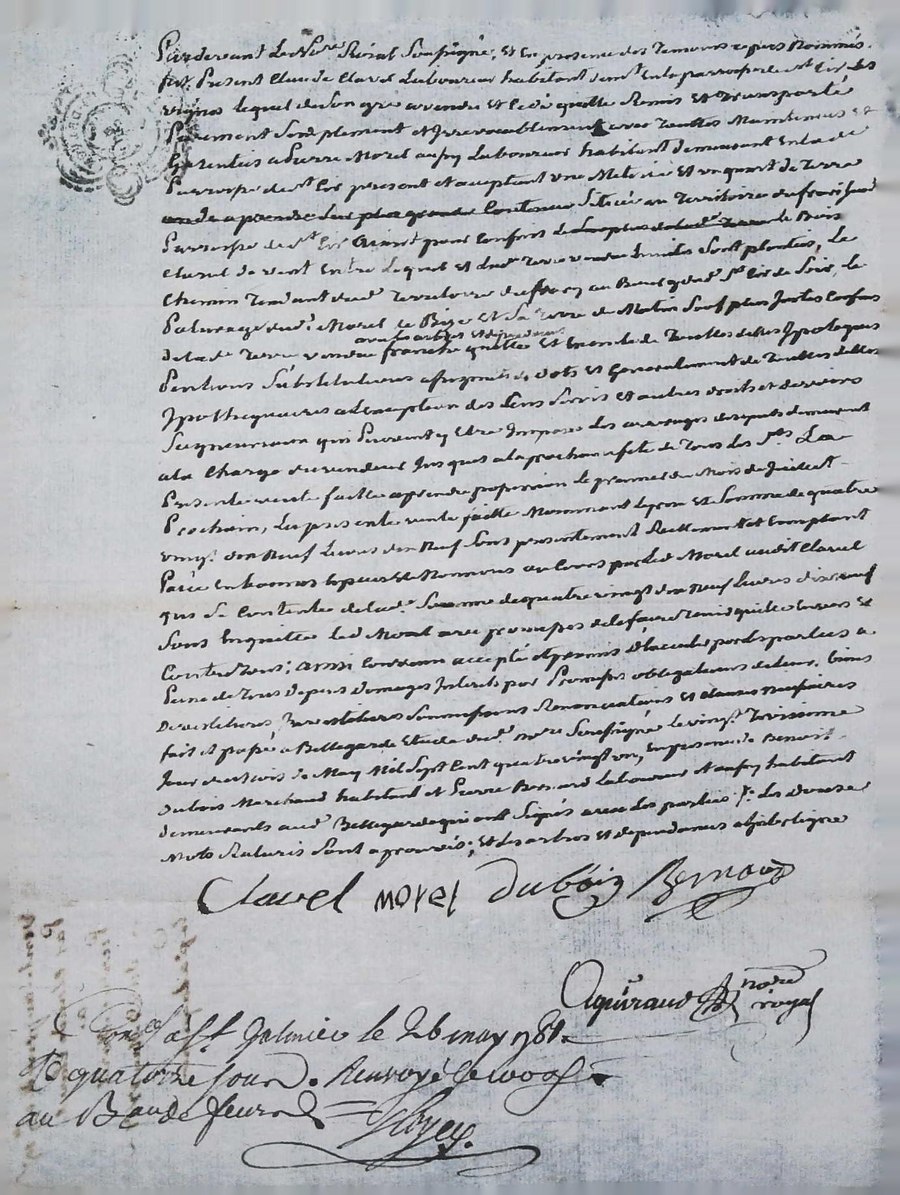 Pardevant Le No.re Roial Soussigné, et En presence des Temoins cy apres Nommés,
fut Present Claude Clavel Laboureur habitant dem.t En la parroisse de S.t Cir Les
vignes lequel de Son gré a vendu et Cede quitte Remis Et Transporté
Purement Simplement et Irrevocablement avec Toutes Maintenues et
Garenties a Pierre Morel aussy Laboureur habitant demeurant En lad.e
Parroisse de S.t Cir present et acceptant une Meterée et un quart de Terre
a prendre Sur plus grande Contenue Située au Territoire du
Parroisse de S.t Cir Ayant pour Confins de lad.e Terre le Bois
Clavel de vent Entre Lequel et lad.e Terre vendue Sont plantées, Le
Chemin Tendant dud. Territoire du au Bourg dud. S.t Cir de Soir, le
Paturage dud. Morel de Bize et Sa Terre de Matin Sauf plus Justes Confins
avec Ses arbres et dependances
de lad.e Terre vendue franche quitte et Exempte de Touttes dettes Ypoteques
Pentions Substitutions de dots et Generalement de Touttes dettes
Ypothequaires a L'exeption des Cens Servis et autres droits et devoirs
Seigneuriaux qui Peuvent y Etre Imposés Les arrerages desquels demeurent
a la Charge du vendeur Jusques a la prochaine fete de Tous Les S.ts La
Presente vente faitte a prendre possession le premier du Mois de Juillet
Prochain, La presente vente faitte Moyennant Le prix Et Somme de quatre
vingt dix Neuf Livres dix Neuf Sous presentement Reellement et Comptant
Paiée En bonnes Especes et Monnoies au Cours par led. Morel aud.t Clavel
qui Se Contente de lad.e Somme de quatre vingt dix Neuf Livres dix neuf
Sous En quitte led. Morel avec promesses de le faire Tenir quitte Envers Et
Contre Tous; ainsi Convenu accepté et promis Etre Executé par les parties a
Peine de Tous Depens Domages Interets par Promesses obligations de leurs biens
Soumissions Renonciations Et Clauses necessaires
fait et passé a Bellegarde Etude dud. no.re Soussigné le vingt Troisieme
Jour du Mois de May Mil Sept Cent quatre vingt un, En presence de Benoit
Dubois Marchand habitant et Pierre Bernard Laboureur aussy habitant
demeurants aud. Bellegarde qui ont Signés avec Les parties; Les Douze
Mots Raturés Sont aprouvés; et Les arbres et dependances
Clavel Morel Dubois Bernard
Aguiraud no.re royal
Con.lé a S.t Galmier le 26 may 1781.
quatorze sous. Renvoyé le 100.e
au B.au de feurs